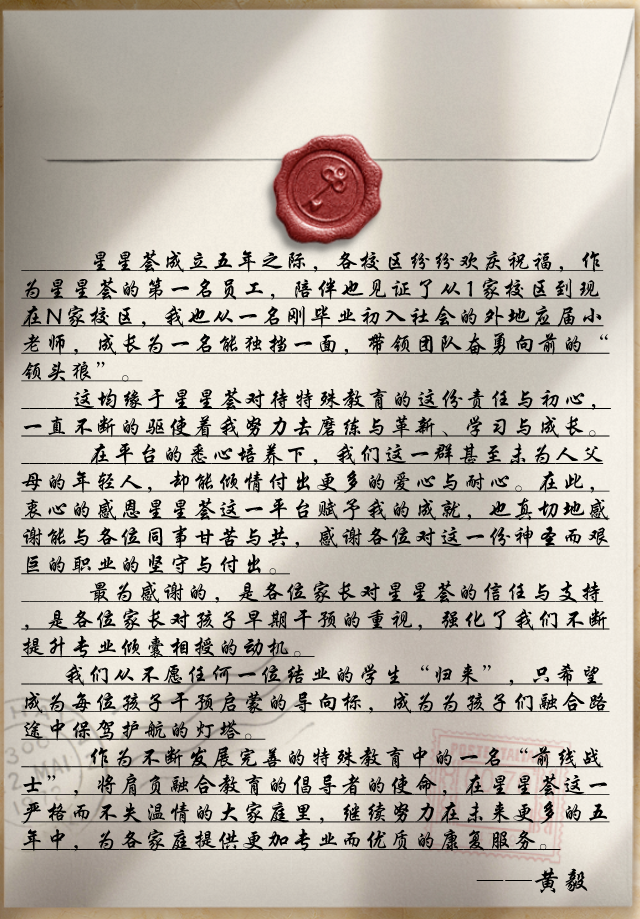 星星荟成立五年之际，各校区纷纷欢庆祝福，作
为星星荟的第一名员工，陪伴也见证了从1家校区到现
在N家校区，我也从一名刚毕业初入社会的外地应届小
老师，成长为一名能独挡一面，带领团队奋勇向前的“
领头狼”。
这均缘于星星荟对待特殊教育的这份责任与初心，
一直不断的驱使着我努力去磨练与革新、学习与成长。
在平台的悉心培养下，我们这一群甚至未为人父
母的年轻人，却能倾情付出更多的爱心与耐心。在此，
衷心的感恩星星荟这一平台赋予我的成就，也真切地感
谢能与各位同事甘苦与共，感谢各位对这一份神圣而艰
巨的职业的坚守与付出。
最为感谢的，是各位家长对星星荟的信任与支持
，是各位家长对孩子早期干预的重视，强化了我们不断
提升专业倾囊相授的动机。
我们从不愿任何一位结业的学生“归来”，只希望
成为每位孩子干预启蒙的导向标，成为为孩子们融合路
途中保驾护航的灯塔。
作为不断发展完善的特殊教育中的一名“前线战
士”，将肩负融合教育的倡导者的使命，在星星荟这一
严格而不失温情的大家庭里，继续努力在未来更多的五
年中，为各家庭提供更加专业而优质的康复服务。
——黄毅